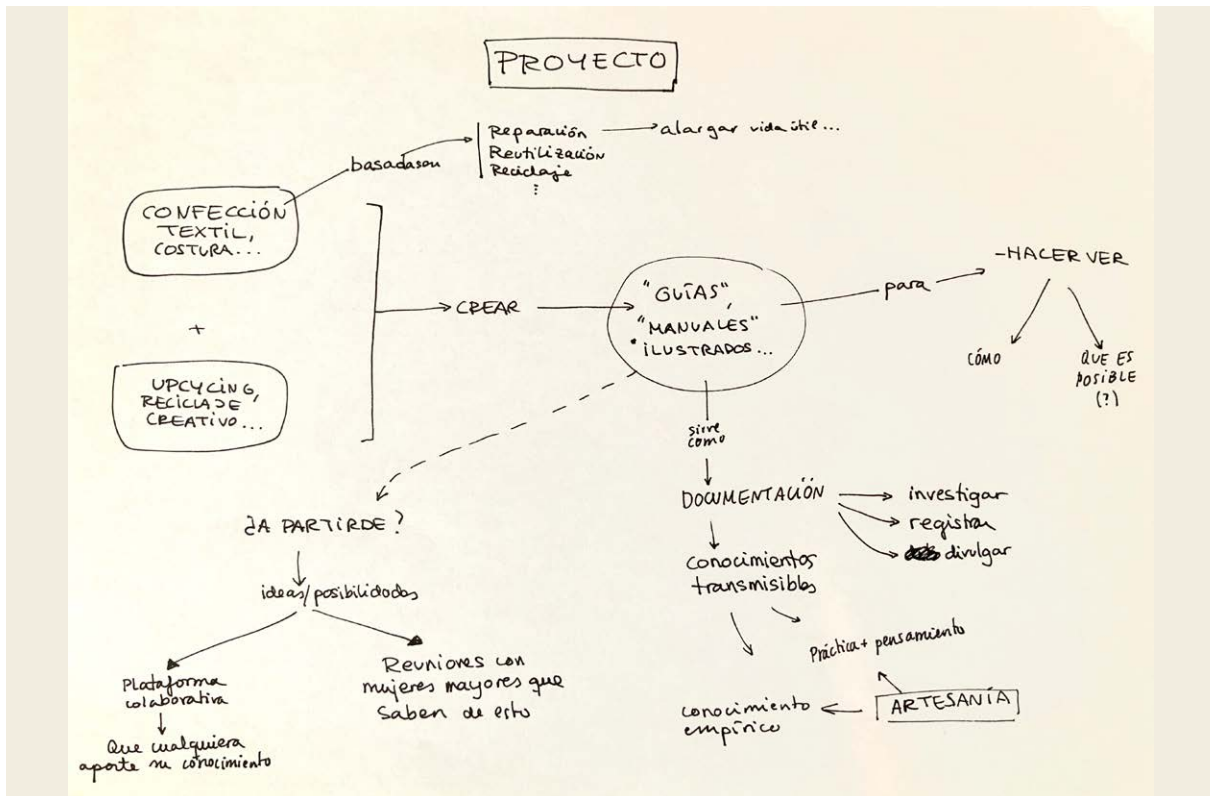 PROYECTO
basadas en
Reparación
Reutilización
Reciclaje
⋮
alargar vida útil...
CONFECCIÓN
TEXTIL,
COSTURA...
+
UPCYCING,
RECICLAJE
CREATIVO...
CREAR
"GUÍAS",
"MANUALES"
ILUSTRADOS...
para
-HACER VER
CÓMO
QUE ES
POSIBLE
(?)
sirve
como
DOCUMENTACIÓN
investigar
registrar
divulgar
conocimientos
transmisibles
Práctica + pensamiento
ARTESANÍA
conocimiento
empírico
¿A PARTIR DE?
ideas/posibilidades
Plataforma
colaborativa
Que cualquiera
aporte su conocimiento
Reuniones con
mujeres mayores que
saben de esto